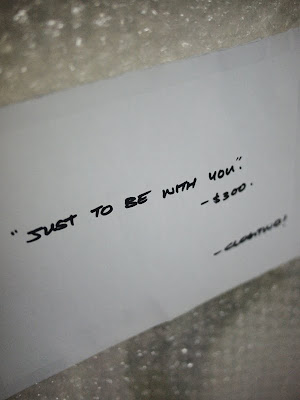 "JUST TO BE WITH YOU".
- $300.